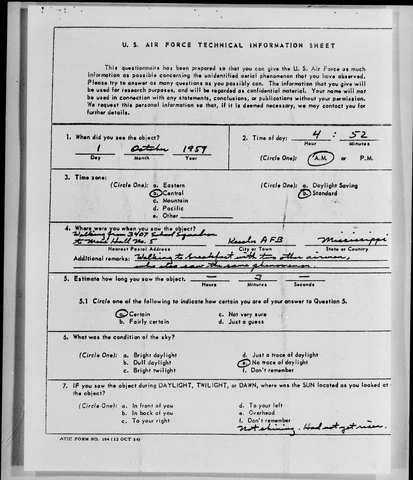 U. S. AIR FORCE TECHNICAL INFORMATION SHEET
This questionnaire has been prepared so that you can give the U. S. Air Force as much
information as possible concerning the unidentified aerial phenomenon that you have observed.
Please try to answer as many questions as you possibly can. The information that you give will
be used for research purposes, and will be regarded as confidential material. Your name will not
be used in connection with any statements, conclusions, or publications without your permission.
We request this personal information so that, if it is deemed necessary, we may contact you for
further details.
1. When did you see the object?
1 October 1959
Day Month Year
2. Time of day: 4 : 52
Hour Minutes
(Circle One): A.M. or P.M.
3. Time zone:
(Circle One): a. Eastern
b. Central
c. Mountain
d. Pacific
e. Other
(Circle One): a. Daylight Saving
b. Standard
4. Where were you when you saw the object?
Walking from 3407 School Squadron
to Mess Hall No. 5 Keesler AFB Mississippi
Nearest Postal Address City or Town State or Country
Additional remarks: Walking to breakfast with two other airmen,
who also saw the same phenomenon.
5. Estimate how long you saw the object. — 3 —
Hours Minutes Seconds
5.1 Circle one of the following to indicate how certain you are of your answer to Question 5.
a. Certain
b. Fairly certain
c. Not very sure
d. Just a guess
6. What was the condition of the sky?
(Circle One): a. Bright daylight
b. Dull daylight
c. Bright twilight
d. Just a trace of daylight
e. No trace of daylight
f. Don't remember
7. IF you saw the object during DAYLIGHT, TWILIGHT, or DAWN, where was the SUN located as you looked at
the object?
(Circle One): a. In front of you
b. In back of you
c. To your right
d. To your left
e. Overhead
f. Don't remember
Not shining. Had not yet risen.
ATIC FORM NO. 164 (13 OCT 54)